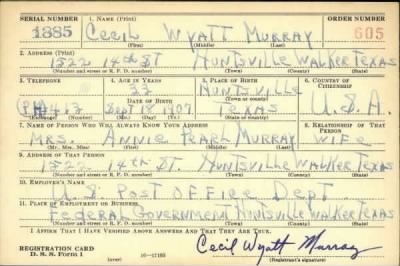 SERIAL NUMBER 1. NAME (Print) ORDER NUMBER
1885 CECIL WYATT MURRAY 605
(First) (Middle) (Last)
2. ADDRESS (Print)
1522 14th ST HUNTSVILLE WALKER TEXAS
(Number and street or R. F. D. number) (Town) (County) (State)
3. TELEPHONE 4. AGE IN YEARS 5. PLACE OF BIRTH 6. COUNTRY OF CITIZENSHIP
33 HUNTSVILLE
DATE OF BIRTH (Town or county)
Sept 18 1907 TEXAS U.S.A.
(Exchange) (Number) (Mo.) (Day) (Yr.) (State or country)
7. NAME OF PERSON WHO WILL ALWAYS KNOW YOUR ADDRESS 8. RELATIONSHIP OF THAT PERSON
MRS. ANNIE PEARL MURRAY WIFE
(Mr., Mrs., Miss) (First) (Middle) (Last)
9. ADDRESS OF THAT PERSON
1522 14th ST. HUNTSVILLE WALKER TEXAS
(Number and street or R. F. D. number) (Town) (County) (State)
10. EMPLOYER'S NAME
U.S. POST OFFICE DEPT
11. PLACE OF EMPLOYMENT OR BUSINESS
FEDERAL GOVERNMENT HUNTSVILLE WALKER TEXAS
(Number and street or R. F. D. number) (Town) (County) (State)
I AFFIRM THAT I HAVE VERIFIED ABOVE ANSWERS AND THAT THEY ARE TRUE.
REGISTRATION CARD
D. S. S. Form 1 (over) 16—17105 Cecil Wyatt Murray
(Registrant's signature)